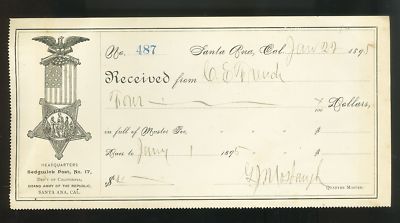 No. 487 Santa Ana, Cal. Jan 22 1895
Received from C. E. French
Four — xx/ Dollars,
in full of Muster Fee, " " " $
Dues to Jany 1 1895 " " $
$4— Quarter Master.
HEADQUARTERS
Sedgwick Post, No. 17,
DEP'T OF CALIFORNIA,
GRAND ARMY OF THE REPUBLIC,
SANTA ANA, CAL.